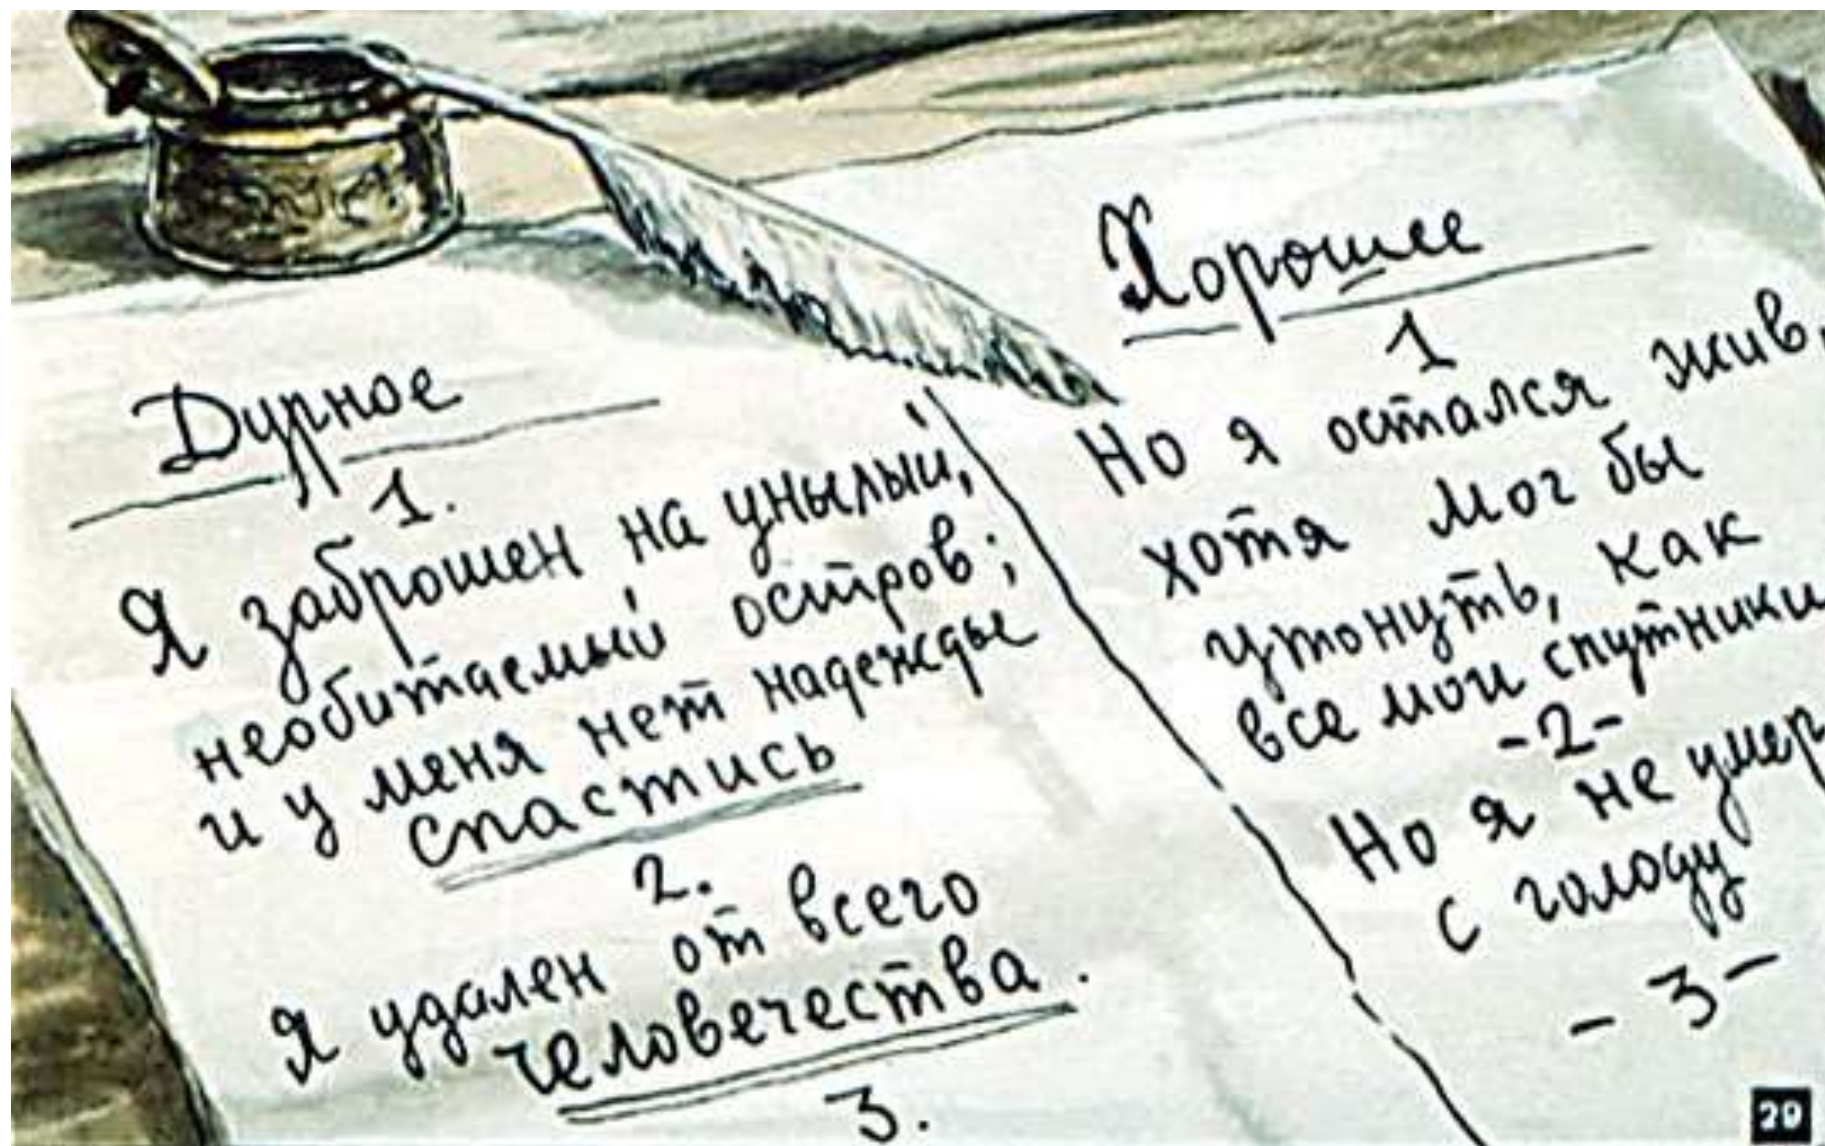 Дурное
1.
Я заброшен на унылый,
необитаемый остров;
и у меня нет надежды
спастись
2.
Я удален от всего
человечества.
3.
Хорошее
1
Но я остался жив,
хотя мог бы
утонуть, как
все мои спутники
-2-
Но я не умер
с голоду
- 3 -
29